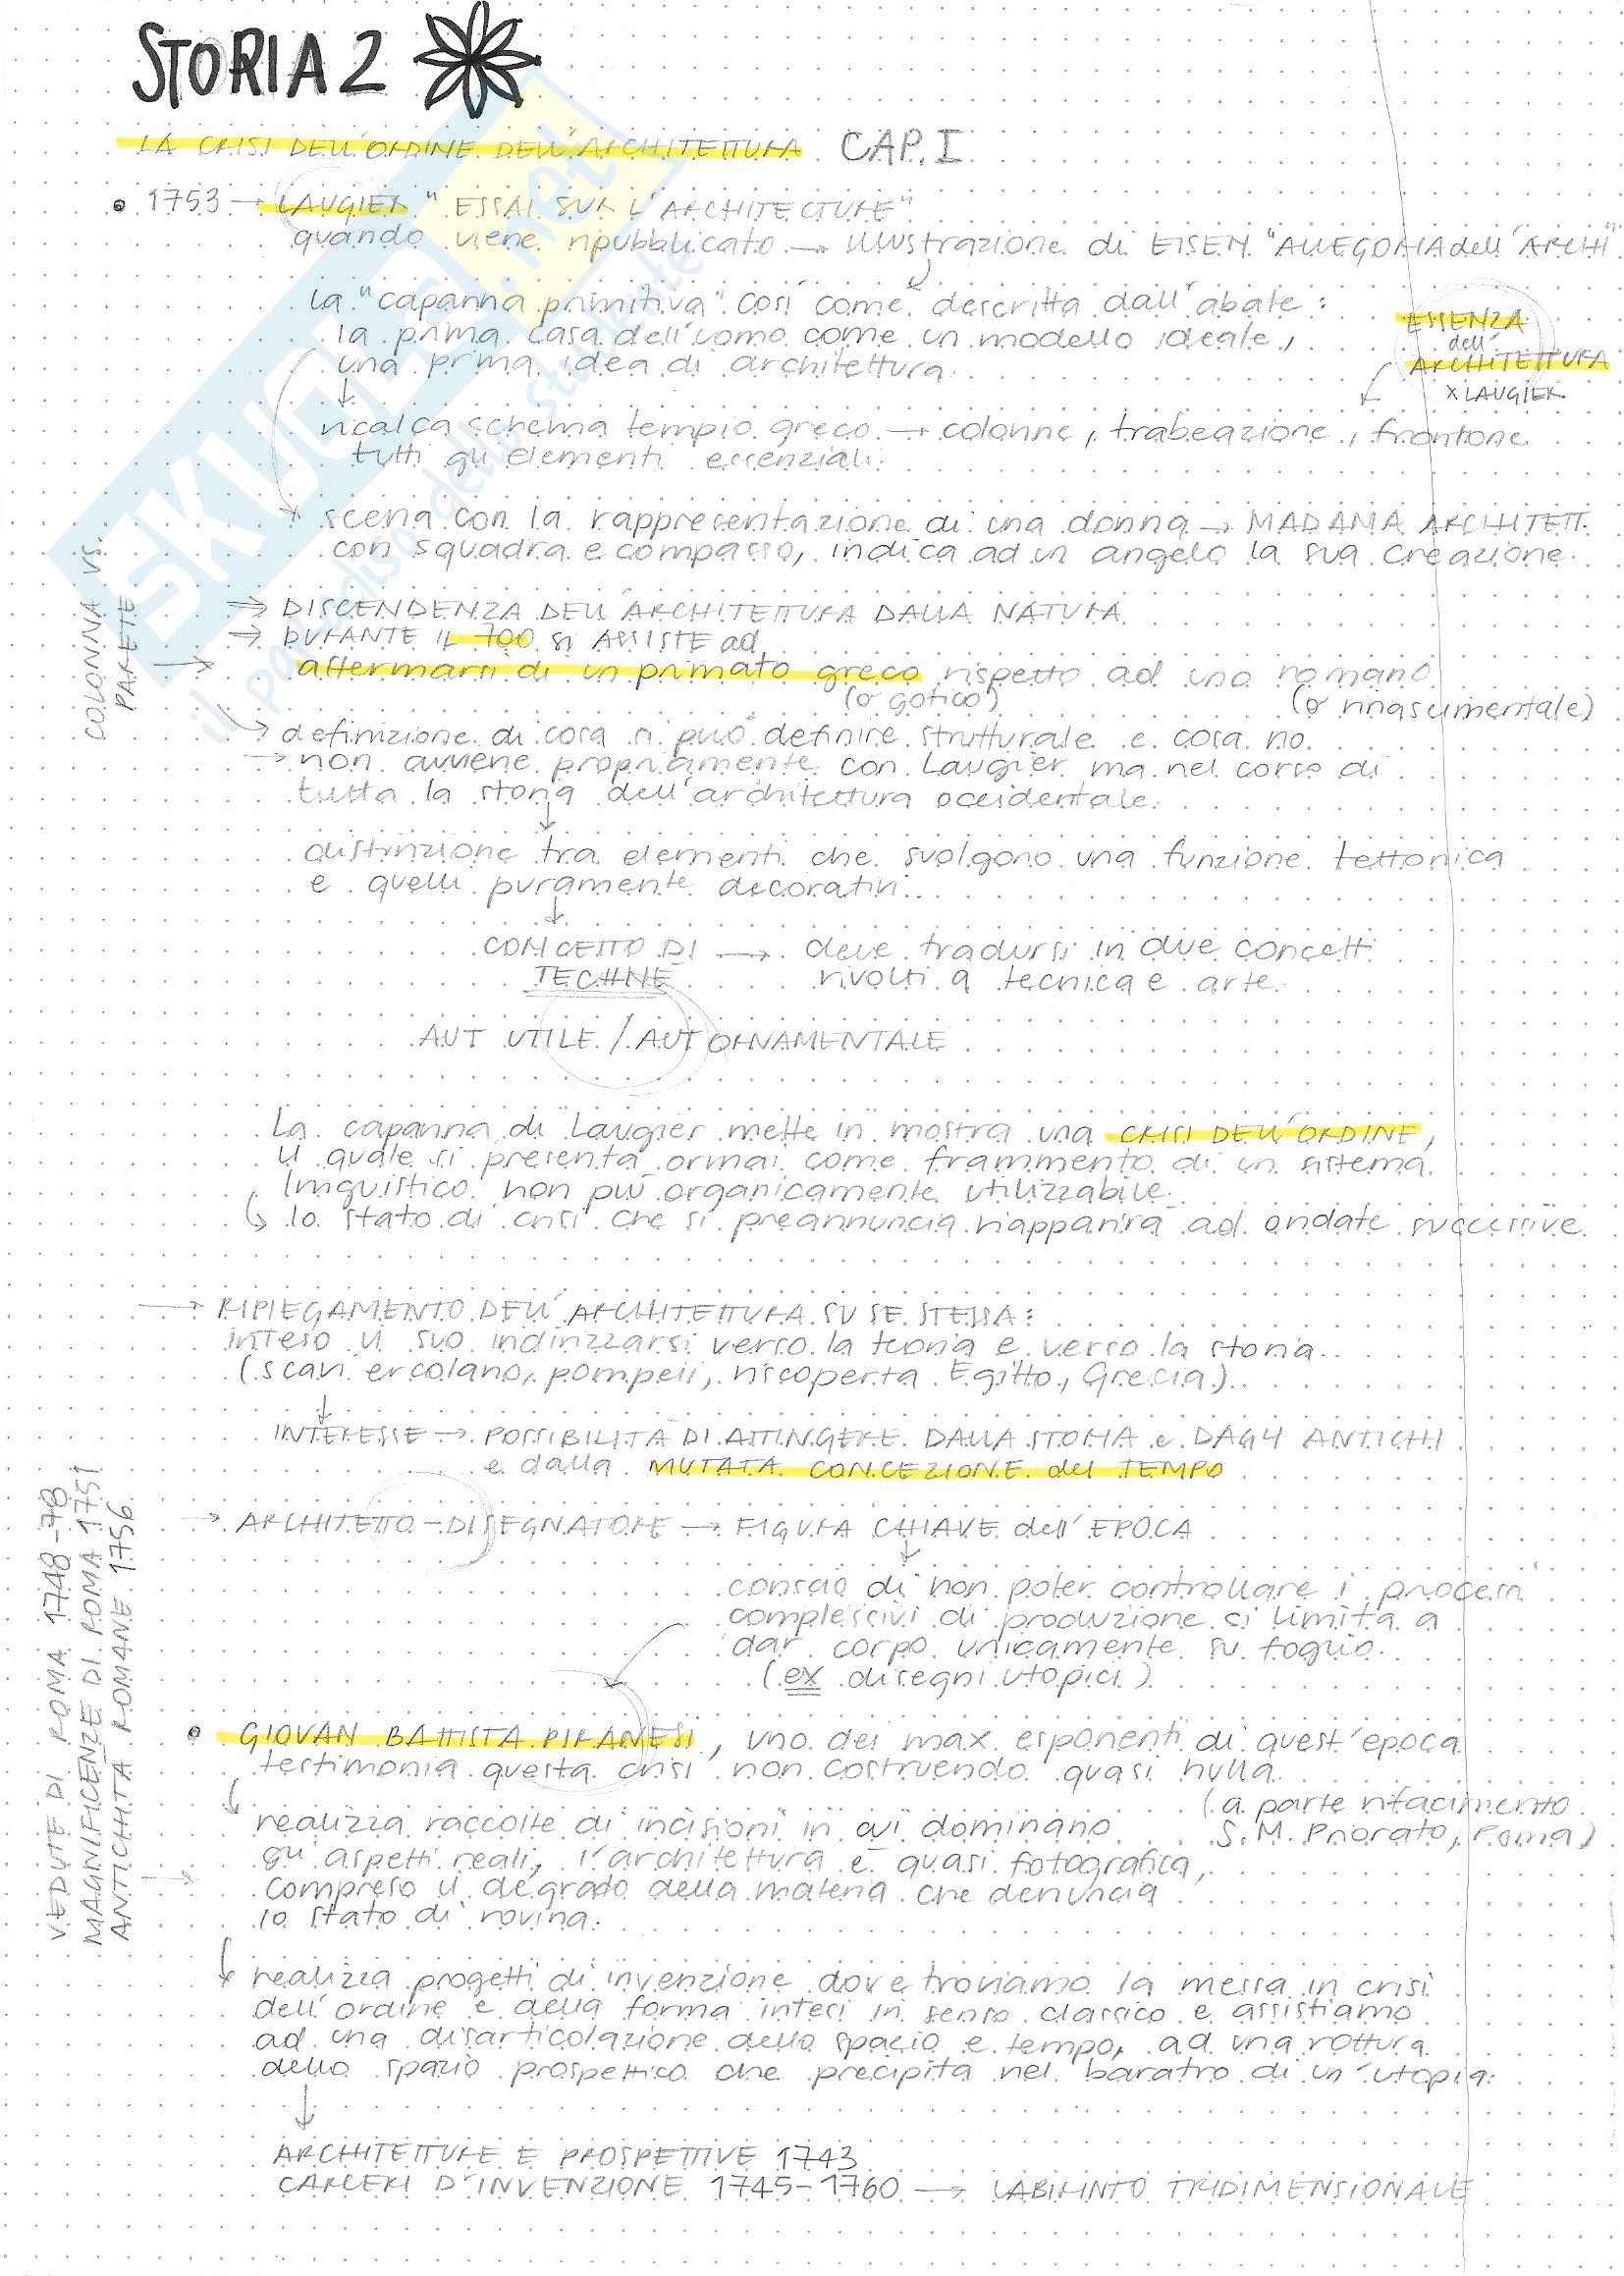 STORIA 2
LA CRISI DELL'ORDINE DELL'ARCHITETTURA CAP. I
• 1753 → LAUGIER "ESSAI SUR L'ARCHITECTURE"
quando viene ripubblicato → illustrazione di EISEN "ALLEGORIA dell'ARCHI"
la "capanna primitiva" così come descritta dall'abate:
la prima casa dell'uomo come un modello ideale,
una prima idea di architettura.
ESSENZA
dell'
ARCHITETTURA
x LAUGIER
ricalca schema tempio greco → colonne, trabeazione, frontone
tutti gli elementi essenziali.
scena con la rappresentazione di una donna → MADAMA ARCHITETT.
con squadra e compasso, indica ad un angelo la sua creazione.
COLONNA vs.
PARETE
⇒ DISCENDENZA DELL'ARCHITETTURA DALLA NATURA
⇒ DURANTE IL 700 si ASSISTE ad
affermarsi di un primato greco rispetto ad uno romano
(o gotico) (o rinascimentale)
→ definizione di cosa si può definire strutturale e cosa no.
→ non avviene propriamente con Laugier ma nel corso di
tutta la storia dell'architettura occidentale.
distinzione tra elementi che svolgono una funzione tettonica
e quelli puramente decorativi.
CONCETTO DI → deve tradursi in due concetti
TECHNE rivolti a tecnica e arte.
AUT UTILE / AUT ORNAMENTALE
La capanna di Laugier mette in mostra una CRISI DELL'ORDINE,
il quale si presenta ormai come frammento di un sistema
linguistico non più organicamente utilizzabile.
↳ lo stato di crisi che si preannuncia riapparirà ad ondate successive
→ RIPIEGAMENTO DELL'ARCHITETTURA SU SE STESSA:
inteso il suo indirizzarsi verso la teoria e verso la storia.
(scavi ercolano, pompeii, riscoperta Egitto, Grecia).
INTERESSE → POSSIBILITÀ DI ATTINGERE DALLA STORIA e DAGLI ANTICHI
e dalla MUTATA CONCEZIONE del TEMPO
→ ARCHITETTO-DISEGNATORE → FIGURA CHIAVE dell'EPOCA
conscio di non poter controllare i processi
complessivi di produzione si limita a
dar corpo unicamente su foglio.
(ex disegni utopici)
VEDUTE DI ROMA 1748-78
MAGNIFICENZE DI ROMA 1751
ANTICHITÀ ROMANE 1756
• GIOVAN BATTISTA PIRANESI, uno dei max esponenti di quest'epoca
testimonia questa crisi non costruendo quasi nulla
(a parte rifacimento
S.M. Priorato, Roma)
realizza raccolte di incisioni in cui dominano
gli aspetti reali, l'architettura è quasi fotografica,
compreso il degrado della materia che denuncia
lo stato di rovina.
realizza progetti di invenzione dove troviamo la messa in crisi
dell'ordine e della forma intesi in senso classico e assistiamo
ad una disarticolazione dello spazio e tempo, ad una rottura
dello spazio prospettico che precipita nel baratro di un'utopia.
ARCHITETTURE E PROSPETTIVE 1743
CARCERI D'INVENZIONE 1745-1760 → LABIRINTO TRIDIMENSIONALE